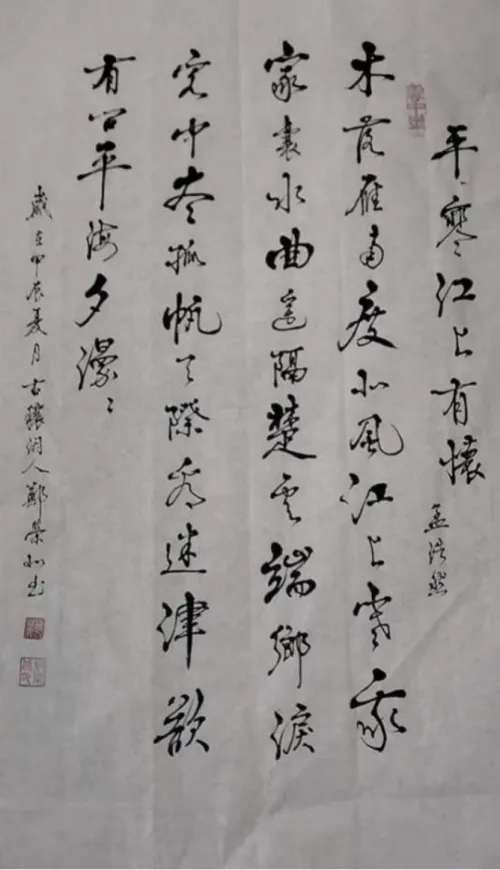 早寒江上有懷 孟浩然
木落雁南度北風江上寒我
家襄水曲遥隔楚云端鄉淚
客中盡孤帆天際看迷津欲
有問平海夕漫〻
歲在甲辰夏月古穰人鄭榮书